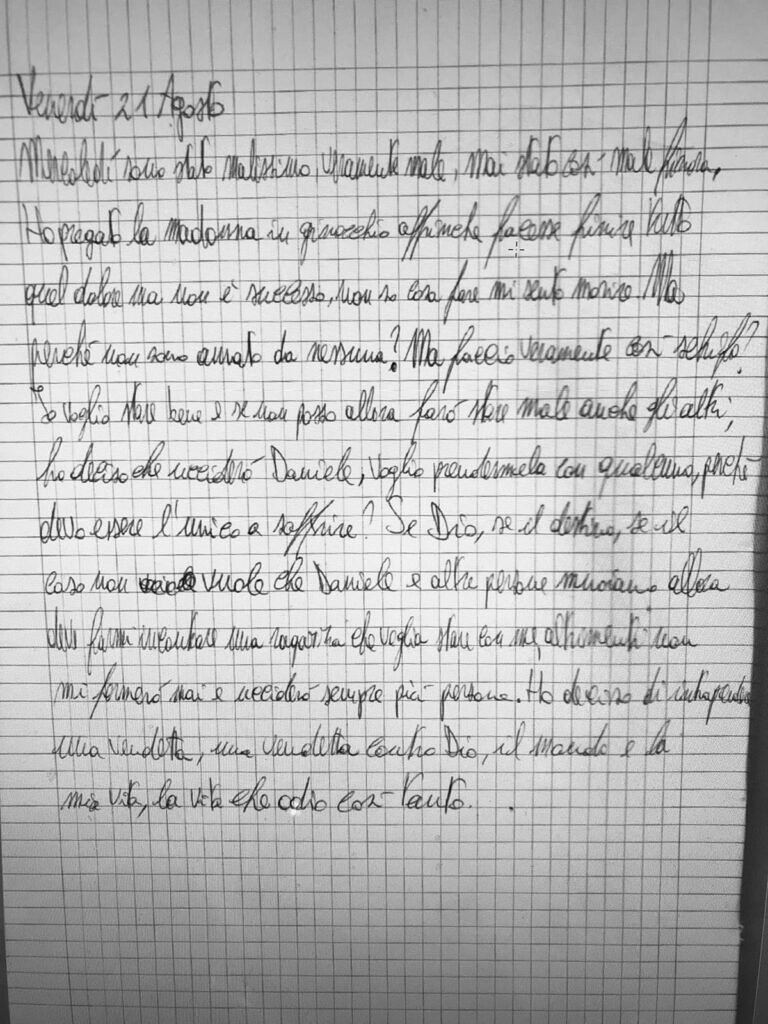 Venerdì 21 Agosto
Mercoledì sono stato malissimo, veramente male, mai stato così male finora,
Ho pregato la madonna in ginocchio affinchè facesse finire tutto
quel dolore ma non è successo, non so cosa fare mi sento morire. Ma
perché non sono amato da nessuna? Ma faccio veramente così schifo?
Io voglio stare bene e se non posso allora farò stare male anche gli altri,
ho deciso che ucciderò Daniele, voglio prendermela con qualcuno, perché
devo essere l'unico a soffrire? Se Dio, se il destino, se il
caso non vuole che Daniele e altre persone muoiano allora
deve farmi incontrare una ragazza che voglia stare con me, altrimenti non
mi fermerò mai e ucciderò sempre più persone. Ho deciso di intraprendere
una vendetta, una vendetta contro Dio, il mondo e la
mia vita, la vita che odio così tanto.